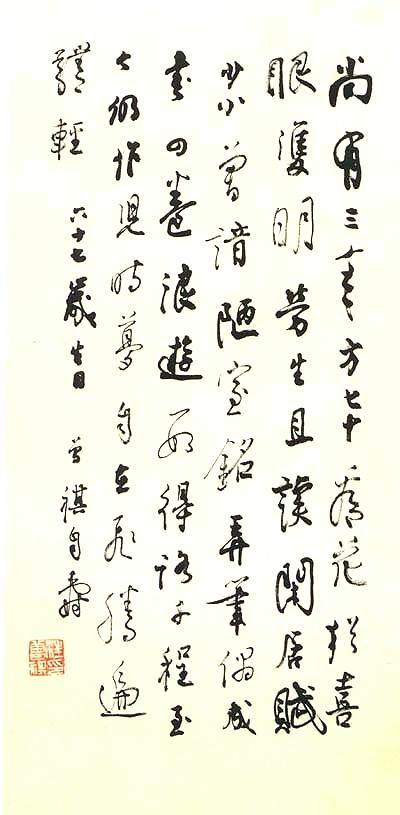 尚有三年方七十看花猶喜
眼雙明勞生且讀閑居賦
少小曾諳陋室銘弄筆偶成
書四卷浪遊數得路千程至
今仍作兒時夢自在飛騰遍
體輕 六十七歲生日 曾祺自壽